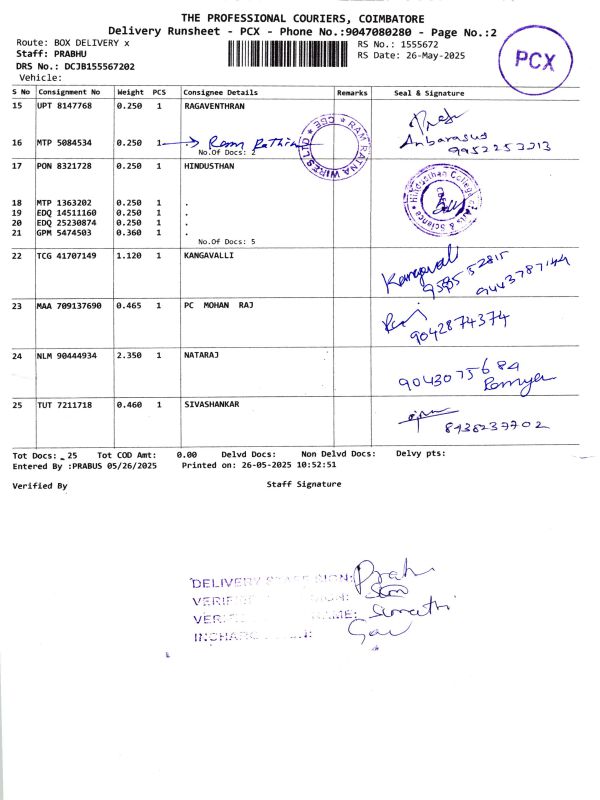 THE PROFESSIONAL COURIERS, COIMBATORE
Delivery Runsheet - PCX - Phone No.:9047080280 - Page No.:2
Route: BOX DELIVERY x
Staff: PRABHU
DRS No.: DCJB155567202
Vehicle:
RS No.: 1555672
RS Date: 26-May-2025
PCX
S No Consignment No Weight PCS Consignee Details Remarks Seal & Signature
15 UPT 8147768 0.250 1 RAGAVENTHRAN
16 MTP 5084534 0.250 1 Ram Rathna
No.Of Docs: 2
RAM RATNA WIRES CBE
Anbarasus
9952253213
17 PON 8321728 0.250 1 HINDUSTHAN
Hindusthan College of Arts & Science
18 MTP 1363202 0.250 1 .
19 EDQ 14511160 0.250 1 .
20 EDQ 25230874 0.250 1 .
21 GPM 5474503 0.360 1 .
No.Of Docs: 5
22 TCG 41707149 1.120 1 KANGAVALLI
Kangavalli
9443787144
23 MAA 709137690 0.465 1 PC MOHAN RAJ
9042874374
24 NLM 90444934 2.350 1 NATARAJ
9043075684
Ramya
25 TUT 7211718 0.460 1 SIVASHANKAR
Tot Docs: 25 Tot COD Amt: 0.00 Delvd Docs: Non Delvd Docs: Delvy pts:
Entered By :PRABUS 05/26/2025 Printed on: 26-05-2025 10:52:51
Verified By Staff Signature
DELIVERY STAFF SIGN:
VERIFIED SIGN:
VERIFIED NAME: Sumathi
INCHARGE SIGN: